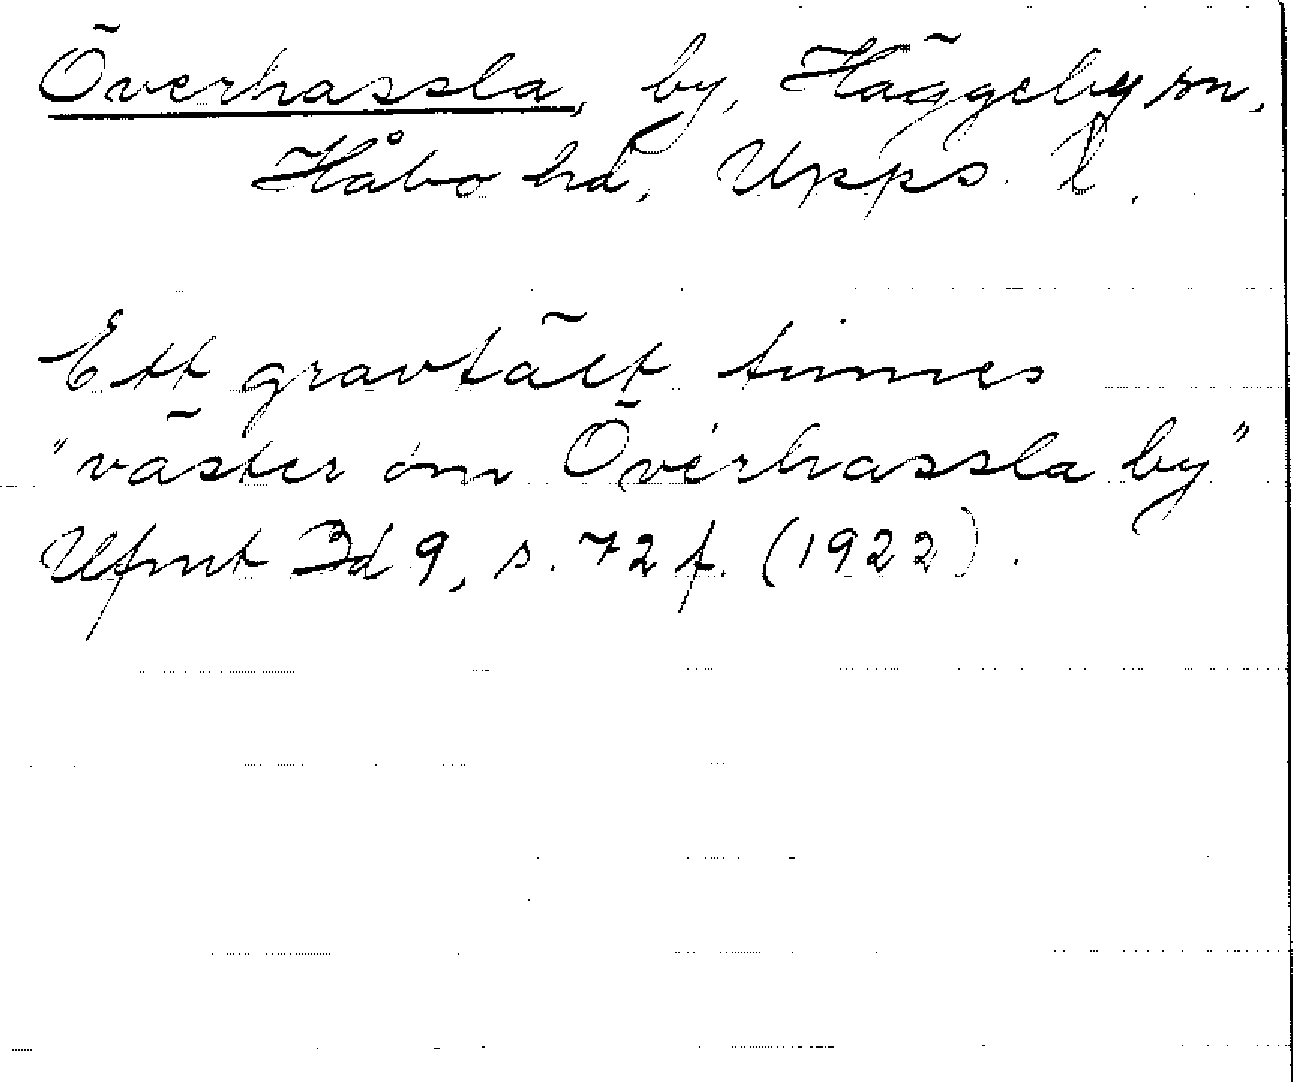 Överhassla, by, Häggeby sn,
Håbo hd, Upps. l.
Ett gravfält finnes
"väster om Överhassla by"
Ufmt Bd 9, s. 72 f. (1922).